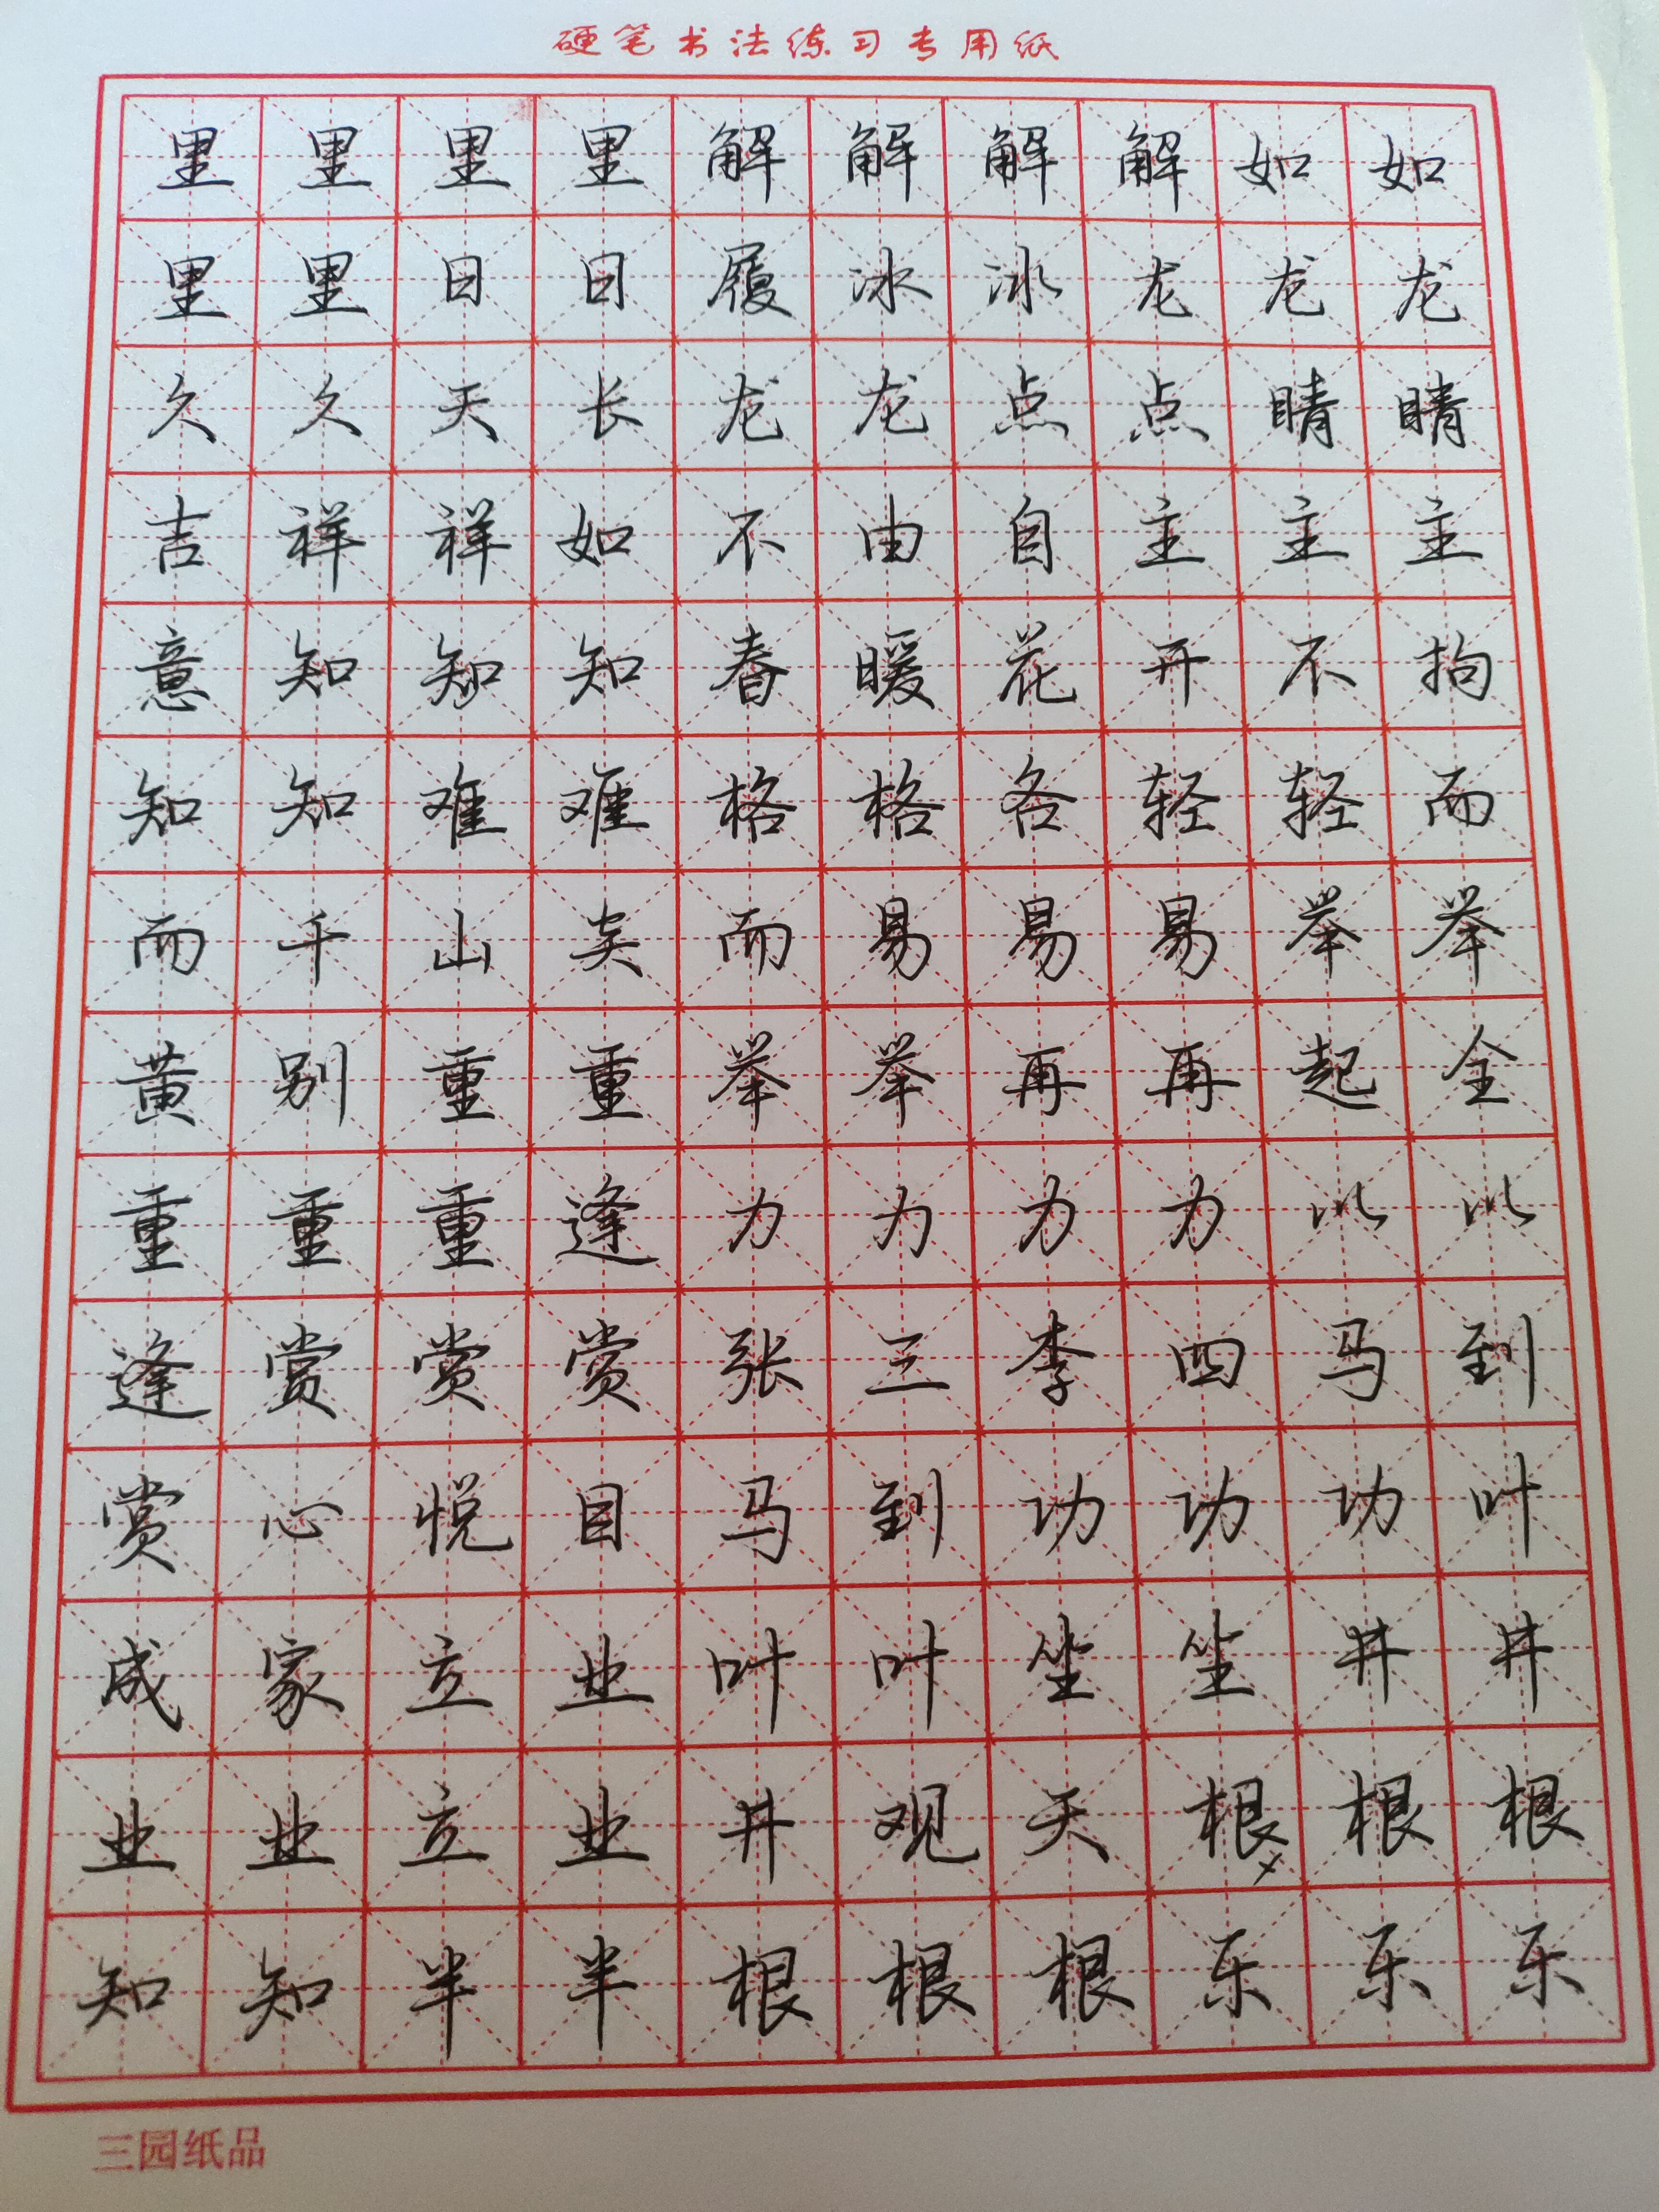 硬笔书法练习专用纸
里里里里解解解解如如
里里日日履冰冰龙龙龙
久久天长龙龙点点睛睛
吉祥祥如不由自主主主
意知知知春暖花开不拘
知知难难格格各轻轻而
而千山矣而易易易举举
黄别重重举举再再起全
重重重逢力力力力以以
逢赏赏赏张三李四马到
赏心悦目马到功功功叶
成家立业叶叶坐坐井井
业业立业井观天根根根
知知半半根根根乐乐乐
三园纸品